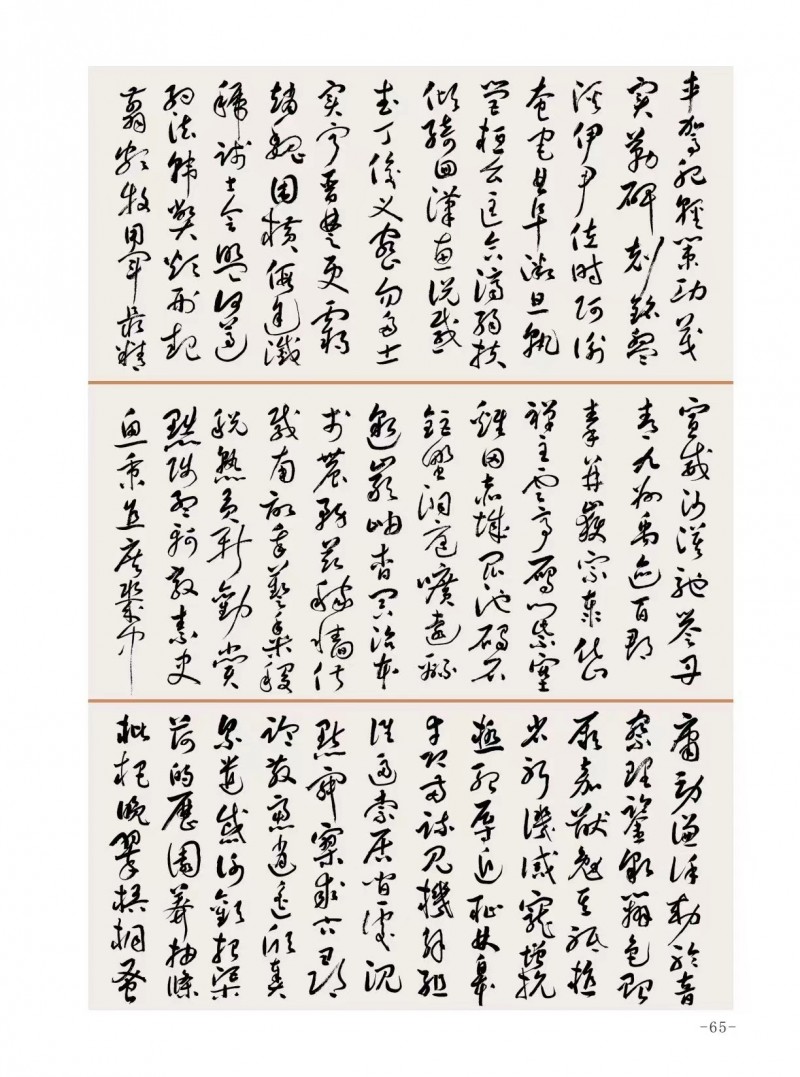 車駕肥輕策功茂
實勒碑刻銘磻
溪伊尹佐時阿衡
奄宅曲阜微旦孰
營桓公匡合濟弱扶
傾綺回漢惠說感
武丁俊乂密勿多士
寔寧晉楚更霸
趙魏困橫假途滅
虢踐土會盟何遵
約法韓弊煩刑起
翦頗牧用軍最精
宣威沙漠馳譽丹
青九州禹跡百郡
秦并嶽宗泰岱
禪主云亭雁門紫塞
雞田赤城昆池碣石
鉅野洞庭曠遠緜
邈巖岫杳冥治本
於農務茲稼穡俶
載南畝我藝黍稷
稅熟貢新勸賞
黜陟孟軻敦素史
魚秉直庶幾中
庸勞謙謹敕聆音
察理鑒貌辨色貽
厥嘉猷勉其祗植
省躬譏誡寵增抗
極殆辱近恥林皋
幸即兩疏見機解組
誰逼索居閒處沉
默寂寥求古尋
論散慮逍遙欣奏
累遣慼謝歡招渠
荷的歷園莽抽條
枇杷晚翠梧桐蚤
-65-